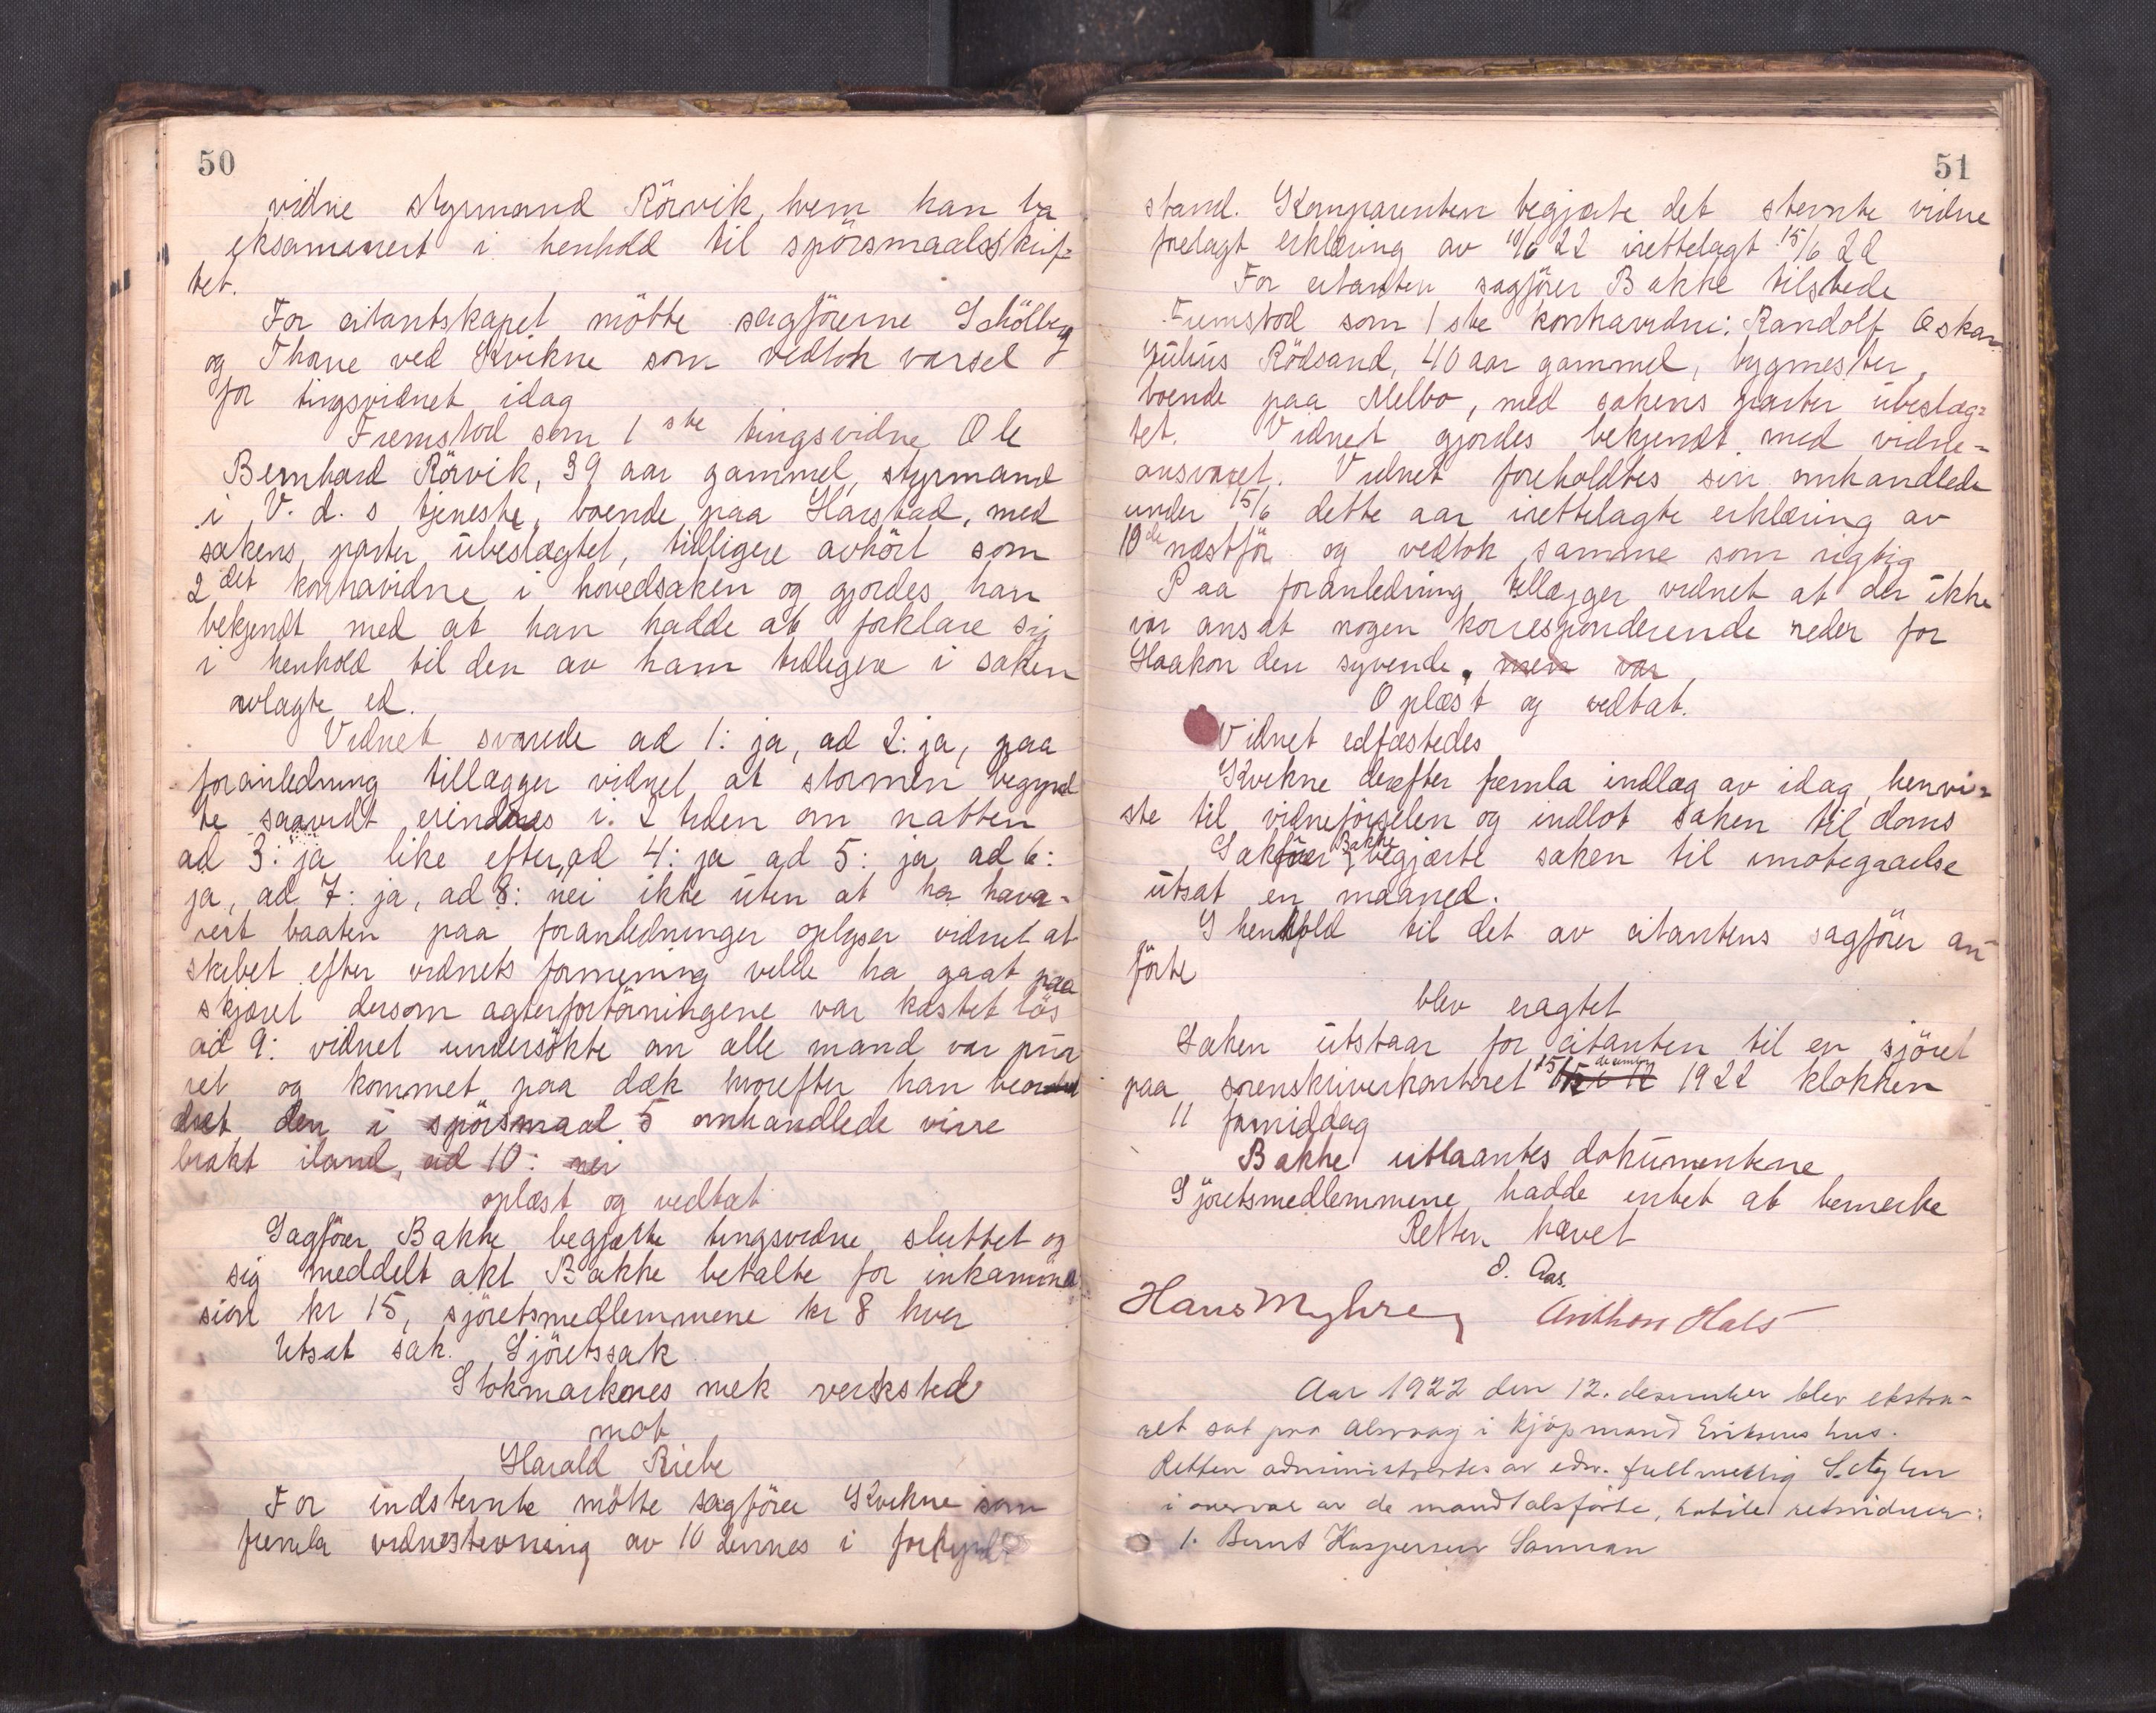 50
vidne styrmand Rörvik, hvem han ba
eksaminert i henhold til spörsmaalsskrif-
tet.
For citantskapet mötte sagförerne Schölberg
og Thone ved Kvikne som vedtok varsel
for tingsvidnet idag
Fremstod som 1ste tingsvidne Ole
Bernhard Rörvik, 39 aar gammel, styrmand
i V. d. s tjeneste, boende paa Harstad, med
sakens parter ubeslegtet, tidligere avhört som
2det kontravidne i hovedsaken og gjordes han
bekjendt med at han hadde at forklare sig
i henhold til den av ham tidligere i saken
avlagte ed.
Vidnet svarede ad 1: ja, ad 2: ja, paa
foranledning tillægger vidnet at stormen begynd
te saavidt erindres i. 2 tiden om natten
ad 3: ja like efter, ad 4: ja ad 5: ja ad 6:
ja, ad 7: ja, ad 8: nei ikke uten at ha hava-
rert baaten paa foranledninger oplyser vidnet at
skibet efter vidnets formening vilde ha gaat paa
skjæret dersom agterfortöiningene var kastet lös
ad 9: vidnet undersökte om alle mand var pur
ret og kommet paa dæk hvorefter han beor
dret den i spörsmaal 5 omhandlede vire
brakt iland, ad 10: nei
oplæst og vedtat
Sagförer Bakke begjærte tingsvidne sluttet og
sig meddelt akt Bakke betalte for inkamina
sion kr 15, sjöretsmedlemmene kr 8 hver
Utsat sak. Sjöretssak
Stokmarknes mek verksted
mot
Harald Riebe
For indstevnte mötte sagförer Kvikne som
fremla vidnestevning av 10 dennes i forkyndt
51
stand. Komparenten begjærte det stevnte vidne
forelagt erklæring av 10/6 22 irettelagt 15/6 22
For citanten sagförer Bakke tilstede
Fremstod som 1ste kontravidne: Randolf Oskar
Julius Rödsand, 40 aar gammel, bygmester,
boende paa Melbo, med sakens parter ubeslæg-
tet. Vidnet gjordes bekjendt med vidne-
ansvaret. Vidnet foreholdtes sin omhandlede
under 15/6 dette aar irettelagte erklæring av
10de næstför og vedtok samme som rigtig
Paa foranledning tillægger vidnet at der ikke
var ansat nogen korresponderende reder for
Haakon den syvende. men var
Oplæst og vedtat.
Vidnet edfæstedes
Kvikne derefter fremla indlæg av idag, henvi-
ste til vidneförselen og indlot saken til doms
Sakförer Bakke begjærte saken til imötegaaelse
utsat en maaned.
I henhold til det av citantens sagförer an
förte
blev eragtet
Saken utstaar for citanten til en sjöret
paa sorenskriverkontoret 15 desember 1922 klokken
11 formiddag
Bakke utlaantes dokumentene
Sjöretsmedlemmene hadde intet at bemerke
Retten hævet
O. Aas.
Hans Myhre Anthon Hals
Aar 1922 den 12. desember blev ekstra-
ret sat paa Alsvaag i kjöpmand Eriksens hus.
Retten administrertes av edsv. fuldmegtig
i overvær av de mandtalsförte, retsvidner:
1. Bernt Kaspersen